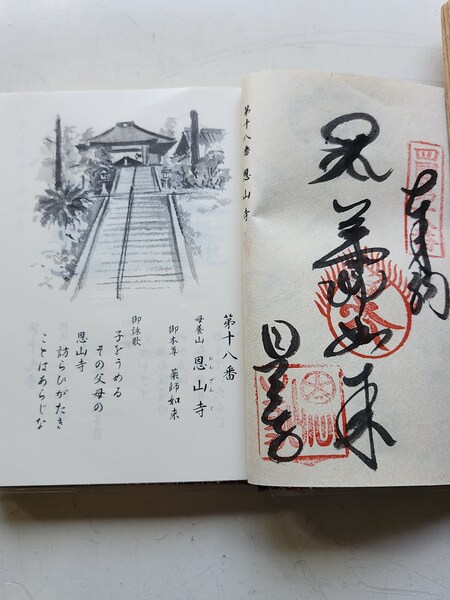 奉納
薬師如来
恩山寺
第十八番 恩山寺
第十八番
母養山 恩山寺
おんざんじ
御本尊 薬師如来
御詠歌
子をうめる
その父母の
恩山寺
訪らひがたき
ことはあらじな